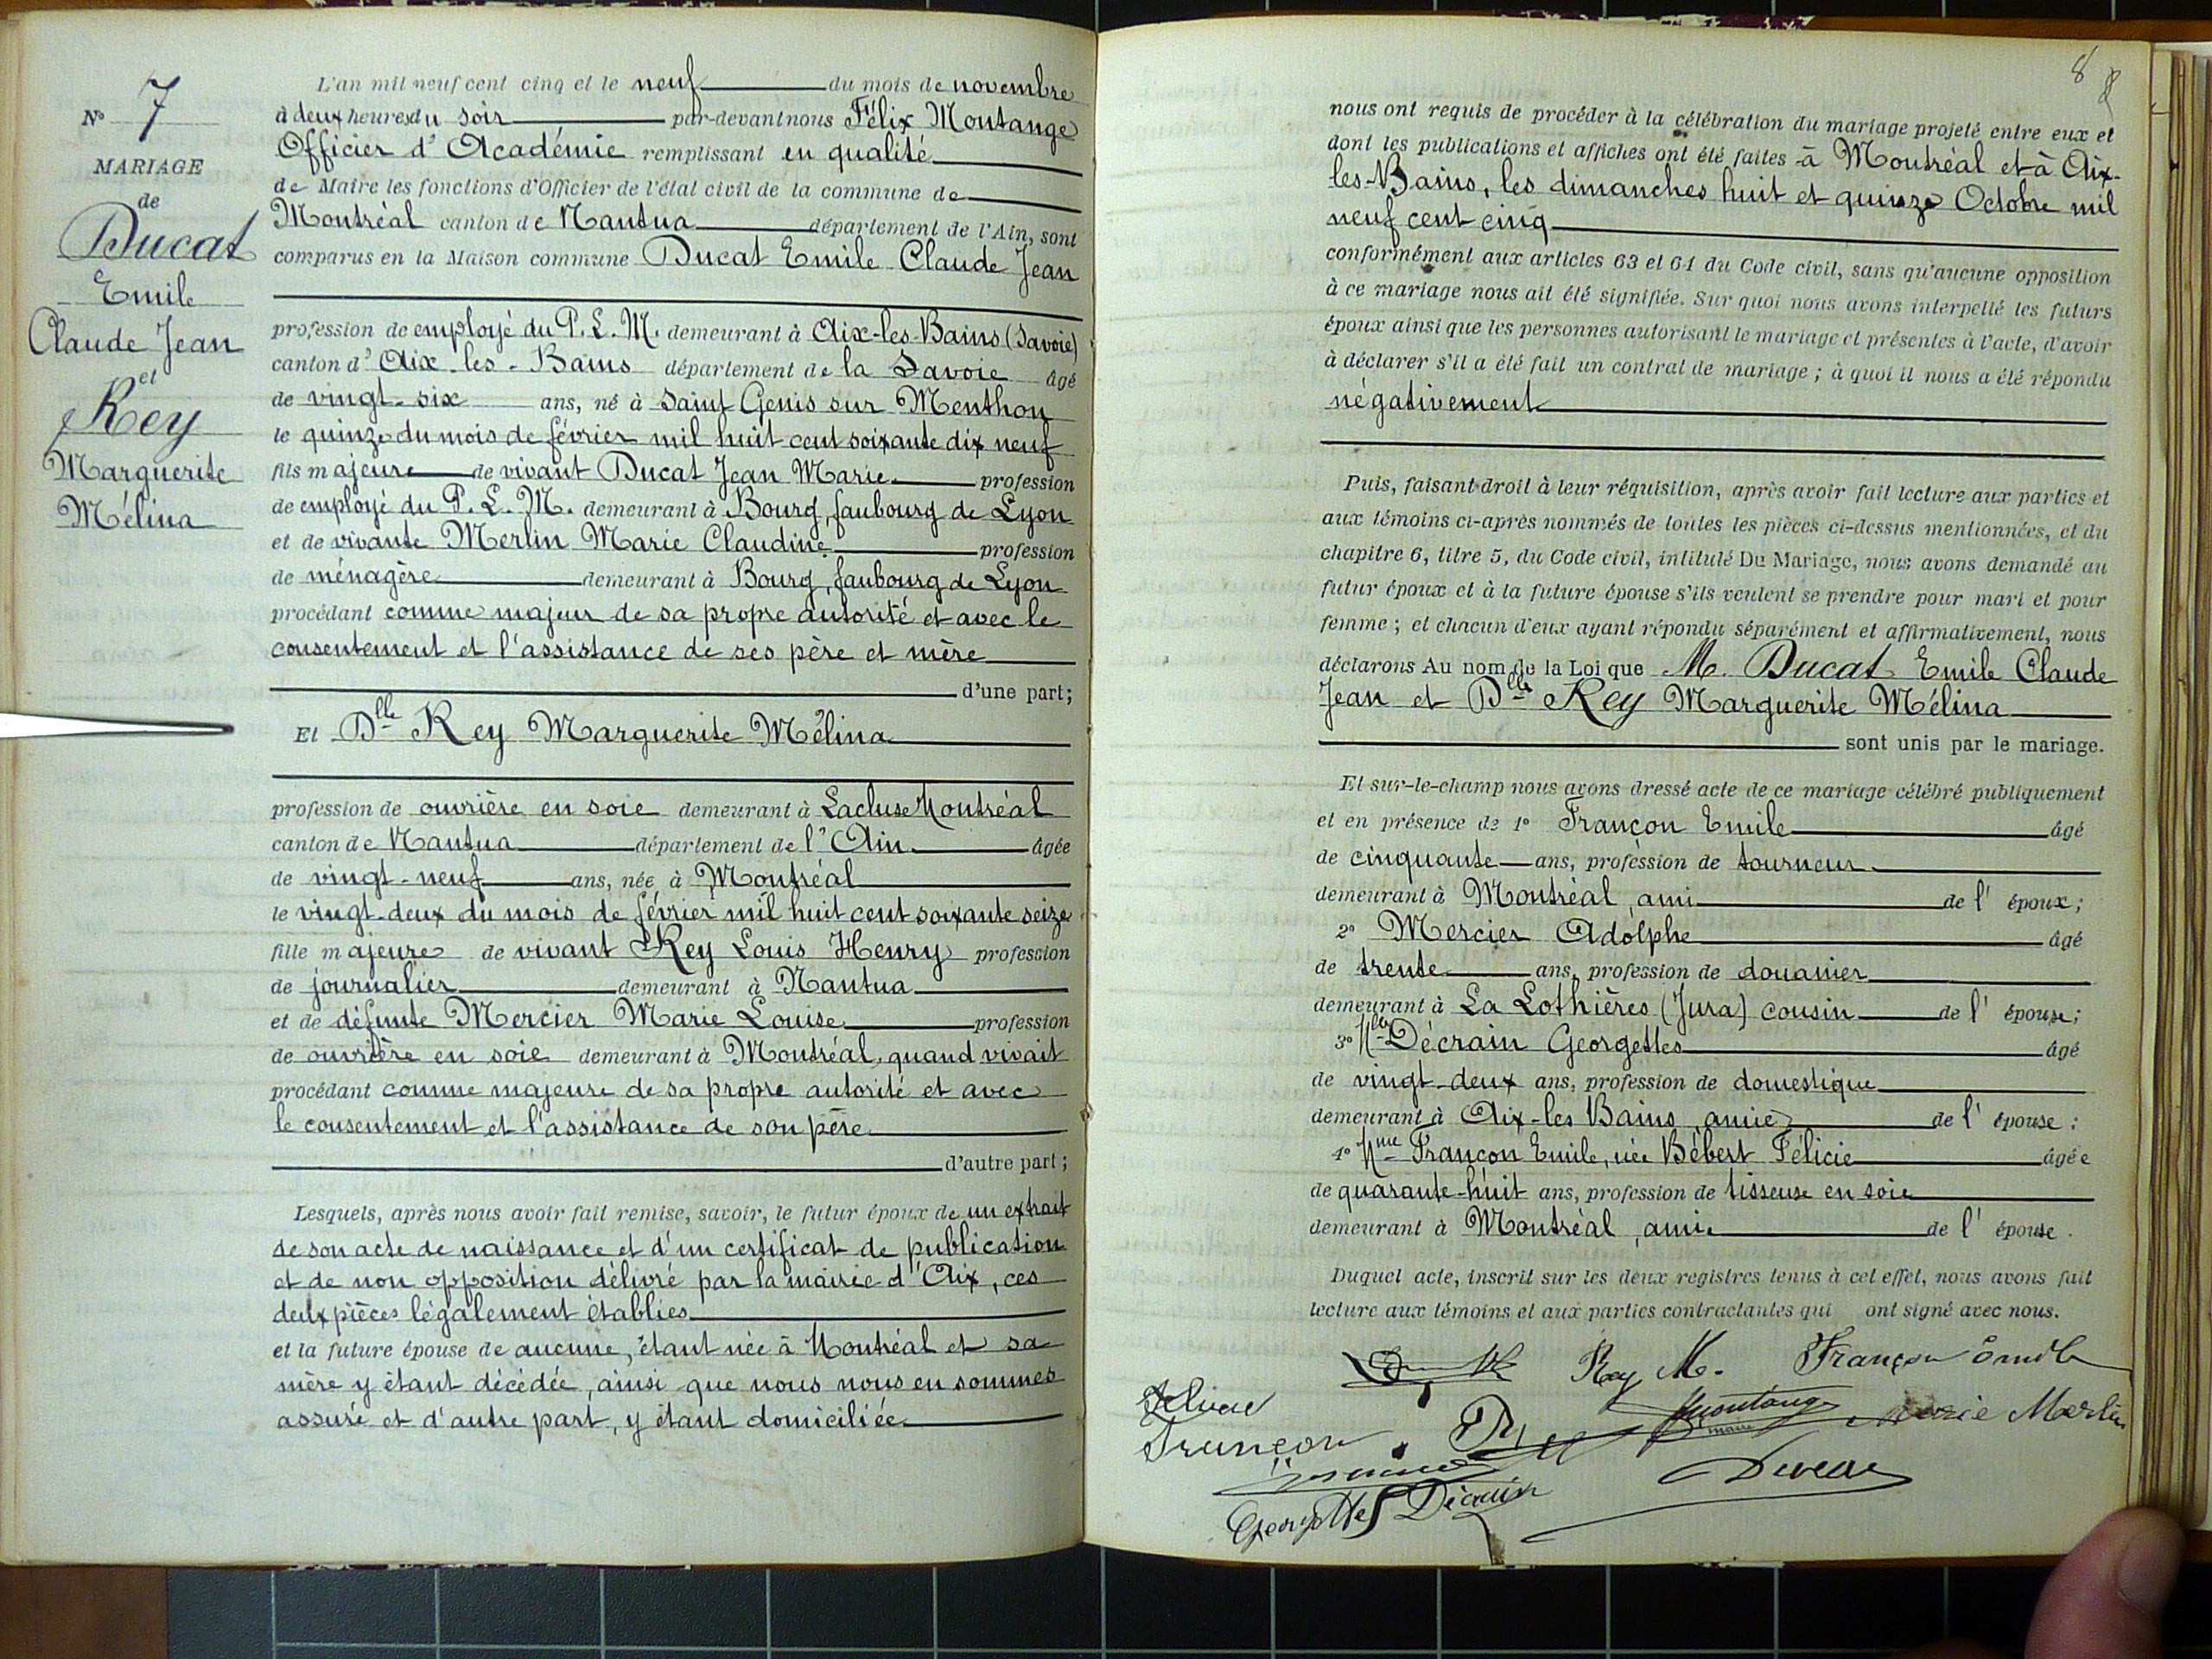 N° 7
MARIAGE
de
Ducat
Emile
Claude Jean
et
Rey
Marguerite
Mélina
L'an mil neuf cent cinq et le neuf du mois de novembre
à deux heures du soir par-devant nous Félix Montange
Officier d'Académie remplissant en qualité
de Maire les fonctions d'Officier de l'état civil de la commune de
Montréal canton de Nantua département de l'Ain, sont
comparus en la Maison commune Ducat Emile Claude Jean
profession de employé du P. L. M. demeurant à Aix-les-Bains (Savoie)
canton d'Aix-les-Bains département de la Savoie âgé
de vingt-six ans, né à Saint Genis sur Menthon
le quinze du mois de février mil huit cent soixante dix neuf
fils majeure de vivant Ducat Jean Marie profession
de employé du P. L. M. demeurant à Bourg, faubourg de Lyon
et de vivante Merlin Marie Claudine profession
de ménagère demeurant à Bourg, faubourg de Lyon
procédant comme majeur de sa propre autorité et avec le
consentement et l'assistance de ses père et mère
d'une part;
Et Dlle Rey Marguerite Mélina
profession de ouvrière en soie demeurant à Lacluse Montréal
canton de Nantua département de l'Ain âgée
de vingt-neuf ans, née à Montréal
le vingt-deux du mois de février mil huit cent soixante seize
fille majeure de vivant Rey Louis Henry profession
de journalier demeurant à Nantua
et de défunte Mercier Marie Louise profession
de ouvrière en soie demeurant à Montréal, quand vivait
procédant comme majeure de sa propre autorité et avec
le consentement et l'assistance de son père
d'autre part;
Lesquels, après nous avoir fait remise, savoir, le futur époux de un extrait
de son acte de naissance et d'un certificat de publication
et de non opposition délivré par la mairie d'Aix, ces
deux pièces légalement établies
et la future épouse de aucune, étant née à Montréal et sa
mère y étant décédée, ainsi que nous nous en sommes
assuré et d'autre part, y étant domiciliée
8
nous ont requis de procéder à la célébration du mariage projeté entre eux et
dont les publications et affiches ont été faites à Montréal et à Aix-
les-Bains, les dimanches huit et quinze Octobre mil
neuf cent cinq
conformément aux articles 63 et 64 du Code civil, sans qu'aucune opposition
à ce mariage nous ait été signifiée. Sur quoi nous avons interpellé les futurs
époux ainsi que les personnes autorisant le mariage et présentes à l'acte, d'avoir
à déclarer s'il a été fait un contrat de mariage; à quoi il nous a été répondu
négativement
Puis, faisant droit à leur réquisition, après avoir fait lecture aux parties et
aux témoins ci-après nommés de toutes les pièces ci-dessus mentionnées, et du
chapitre 6, titre 5, du Code civil, intitulé Du Mariage, nous avons demandé au
futur époux et à la future épouse s'ils veulent se prendre pour mari et pour
femme; et chacun d'eux ayant répondu séparément et affirmativement, nous
déclarons Au nom de la Loi que M. Ducat Emile Claude
Jean et Dlle Rey Marguerite Mélina
sont unis par le mariage.
Et sur-le-champ nous avons dressé acte de ce mariage célébré publiquement
et en présence de 1° Françon Emile âgé
de cinquante ans, profession de tourneur
demeurant à Montréal, ami de l'époux;
2° Mercier Adolphe âgé
de trente ans, profession de douanier
demeurant à La Lothières (Jura) cousin de l'épouse;
3° Mlle Décrain Georgettes âgé
de vingt-deux ans, profession de domestique
demeurant à Aix-les Bains, amie de l'épouse;
4° Mme Françon Emile, née Bébert Félicie âgée
de quarante-huit ans, profession de tisseuse en soie
demeurant à Montréal, amie de l'épouse.
Duquel acte, inscrit sur les deux registres tenus à cet effet, nous avons fait
lecture aux témoins et aux parties contractantes qui ont signé avec nous.
Rey M. Françon Emile
Montange
maire
Marie Merlin
Françon
Georgettes Décrain